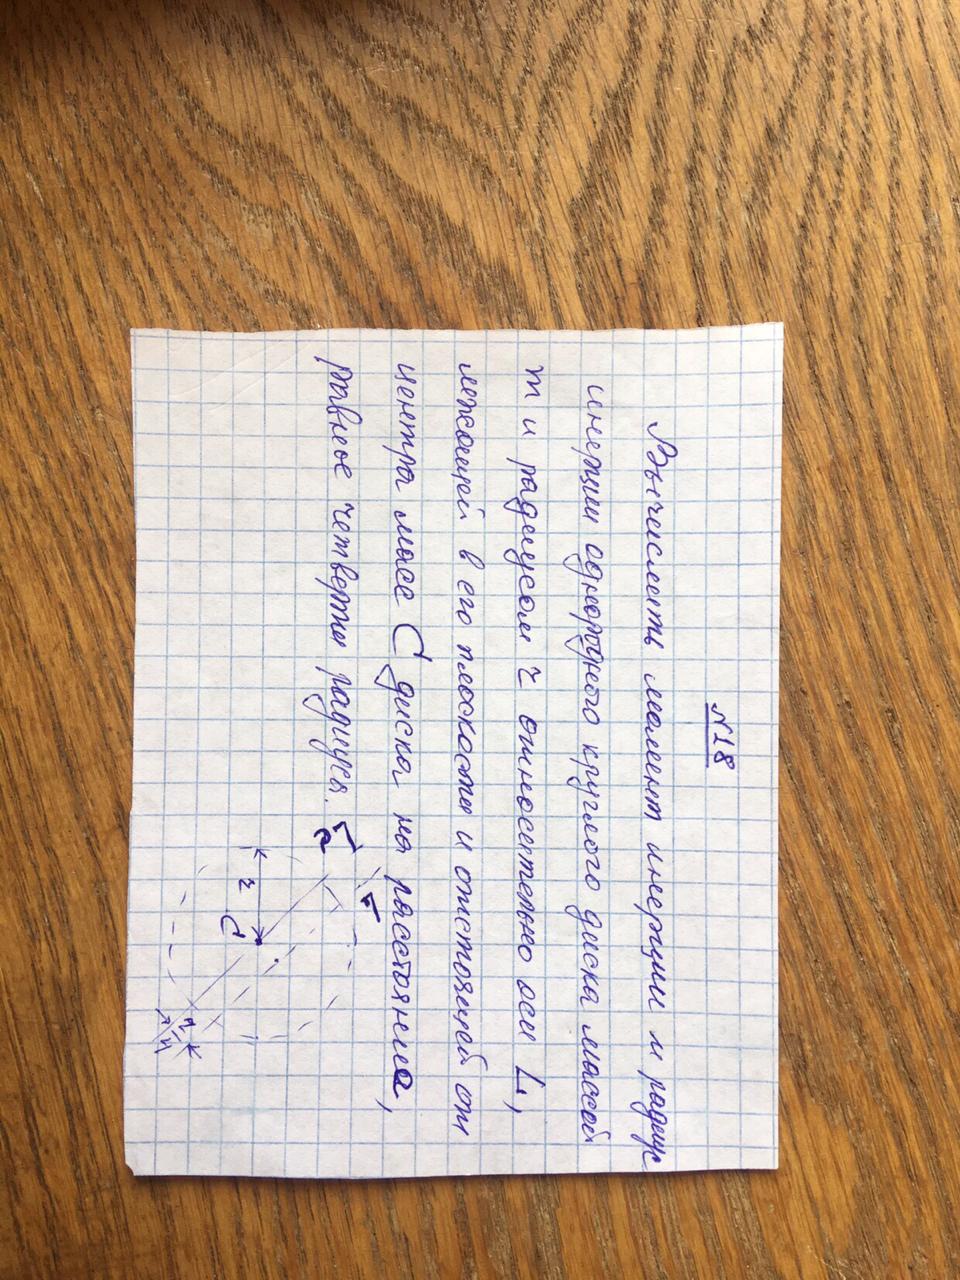 №18
Вычислить момент инерции и радиус
инерции однородного круглого диска массой
m и радиусом r относительно оси L,
лежащей в его плоскости и отстоящей от
центра масс C диска на расстояние,
равное четверти радиуса.
L
r
C